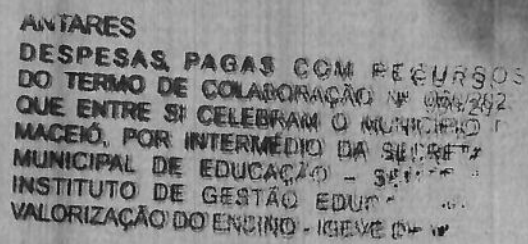 ANTARES
DESPESAS PAGAS COM RECURSOS
DO TERMO DE COLABORAÇÃO Nº
QUE ENTRE SI CELEBRAM O MUNICÍPIO
MACEIÓ, POR INTERMÉDIO DA
MUNICIPAL DE EDUCAÇÃO -
INSTITUTO DE GESTÃO
VALORIZAÇÃO DO ENSINO - IGEVE